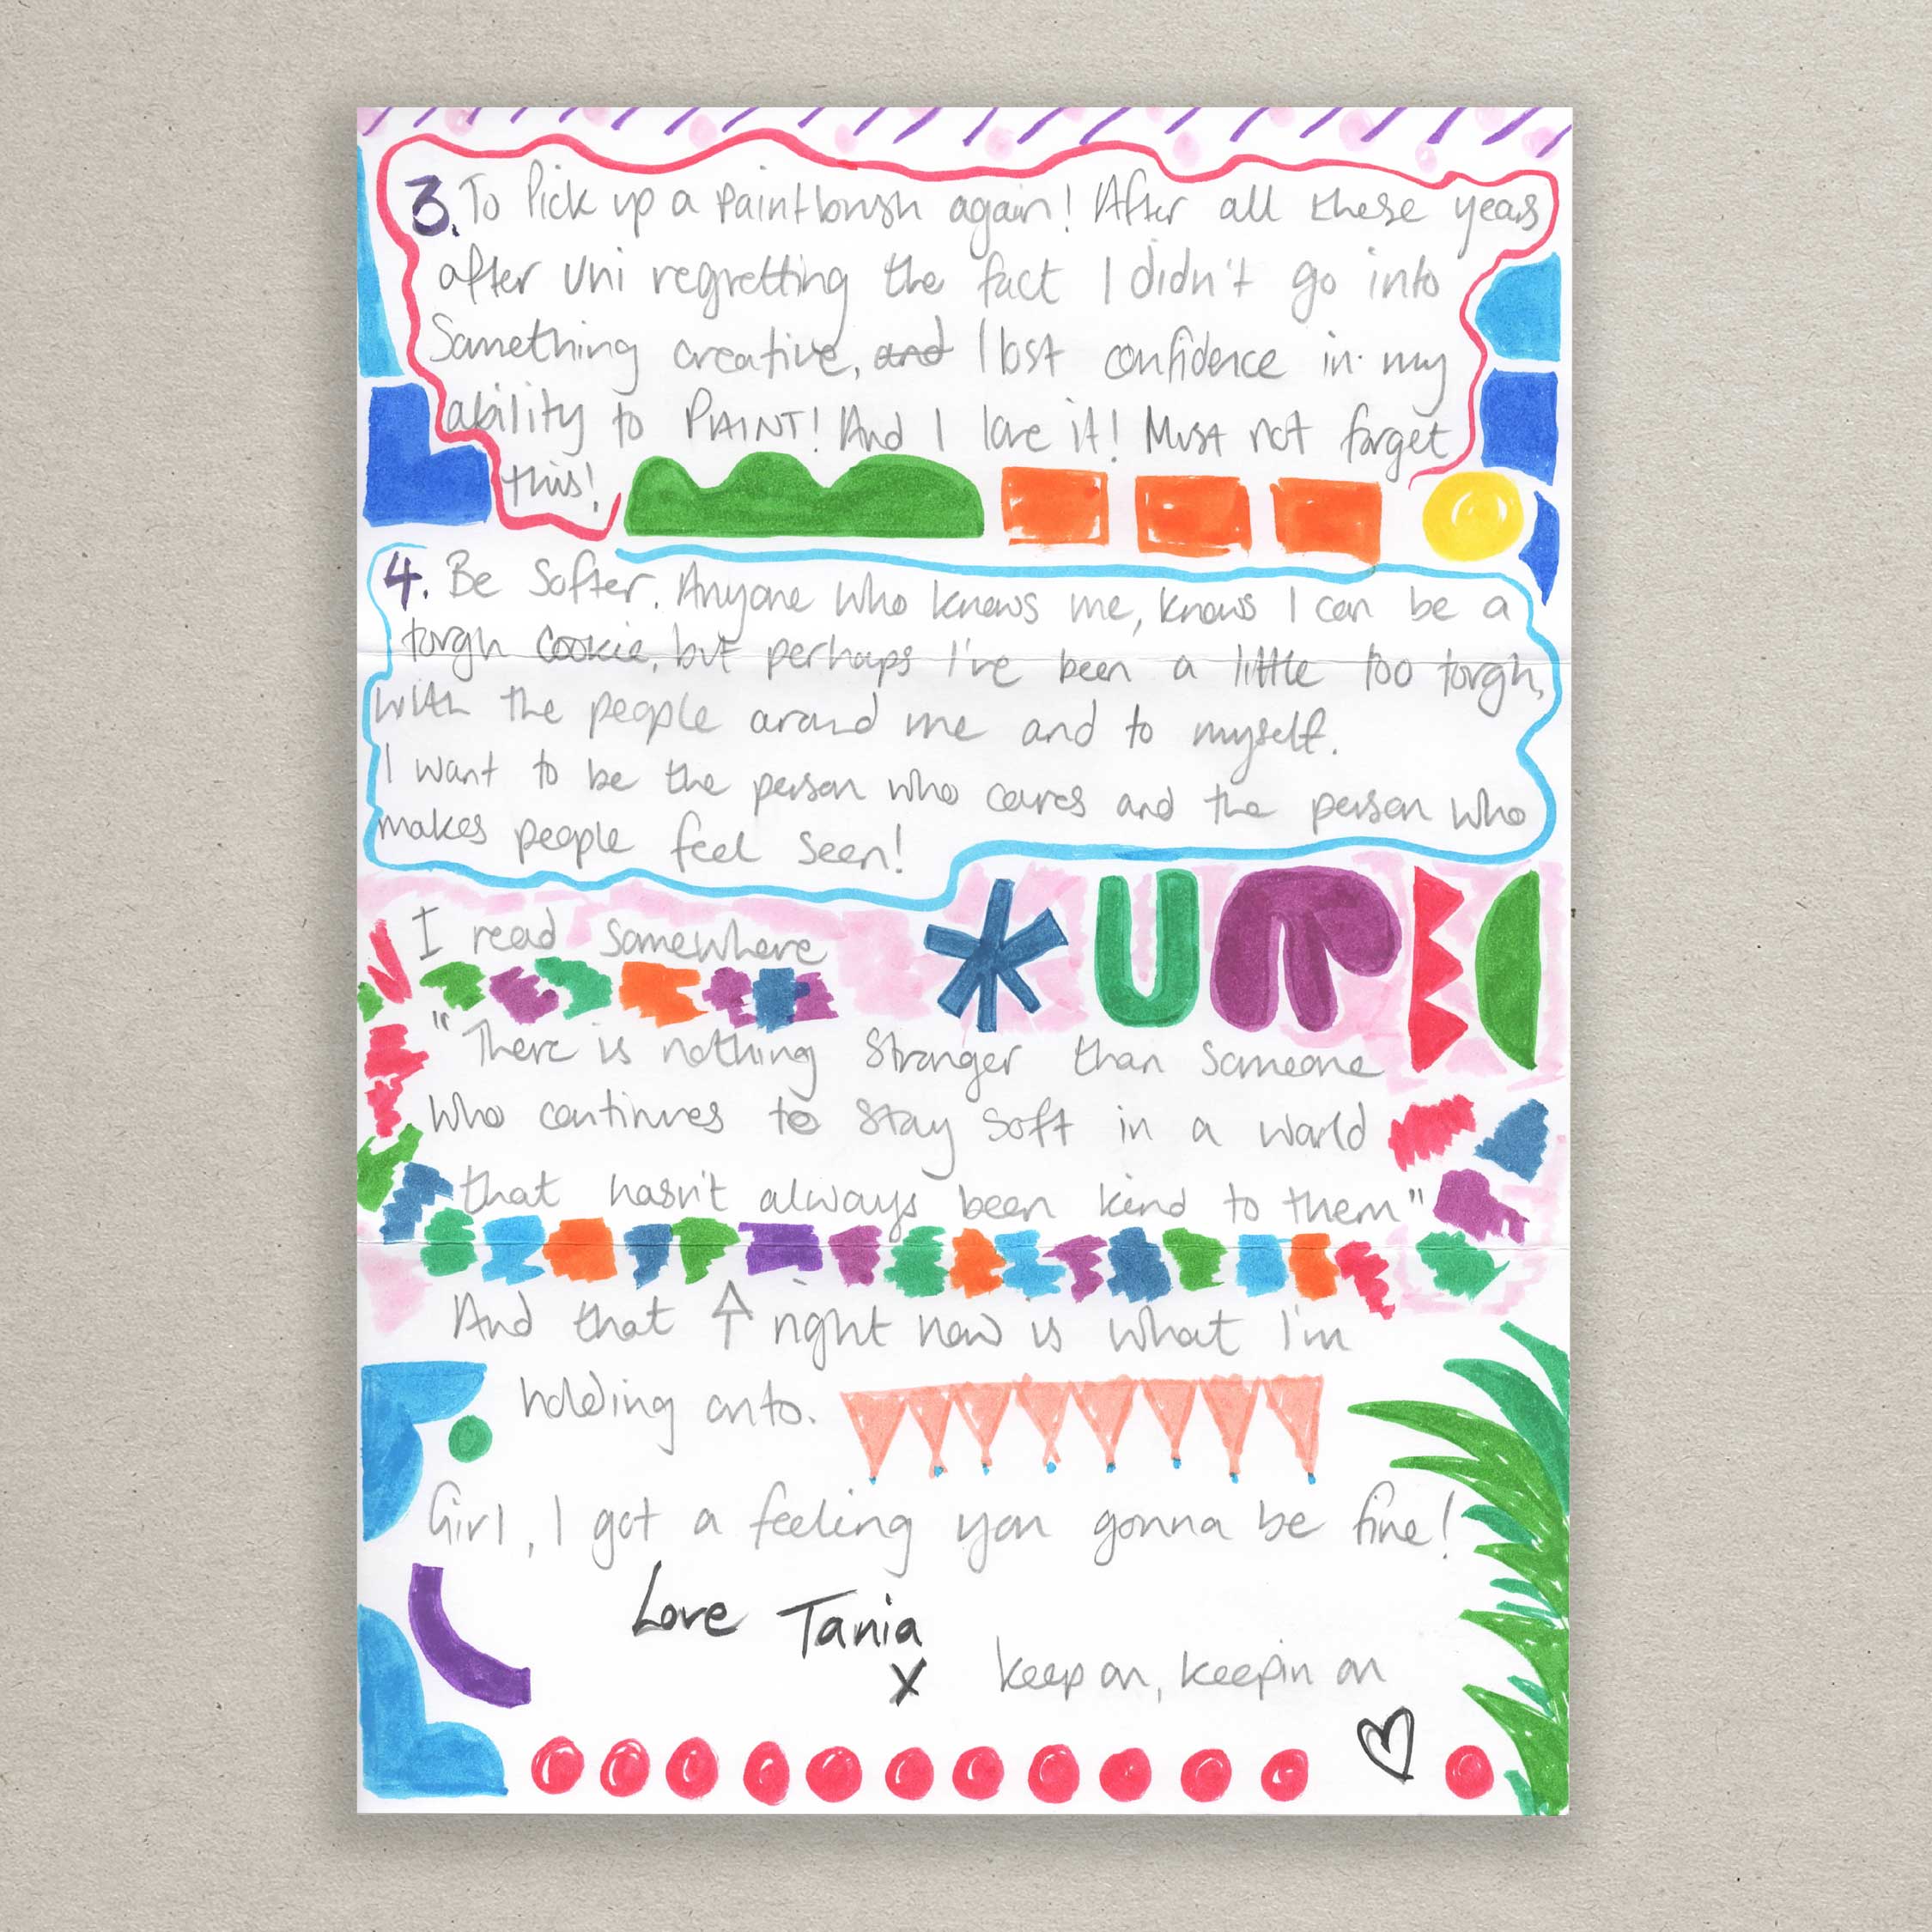 3. To Pick up a paintbrush again! After all these years
after Uni regretting the fact I didn't go into
Something creative, and I lost confidence in my
ability to PAINT! And I love it! Must not forget
this!
4. Be Softer. Anyone who knows me, knows I can be a
tough cookie, but perhaps I've been a little too tough,
with the people around me and to myself.
I want to be the person who cares and the person who
makes people feel seen!
I read somewhere
"There is nothing stronger than someone
who continues to stay soft in a world
that hasn't always been kind to them"
And that ↑ right now is what I'm
holding onto.
Girl, I got a feeling you gonna be fine!
Love Tania
X
keep on, keepin on